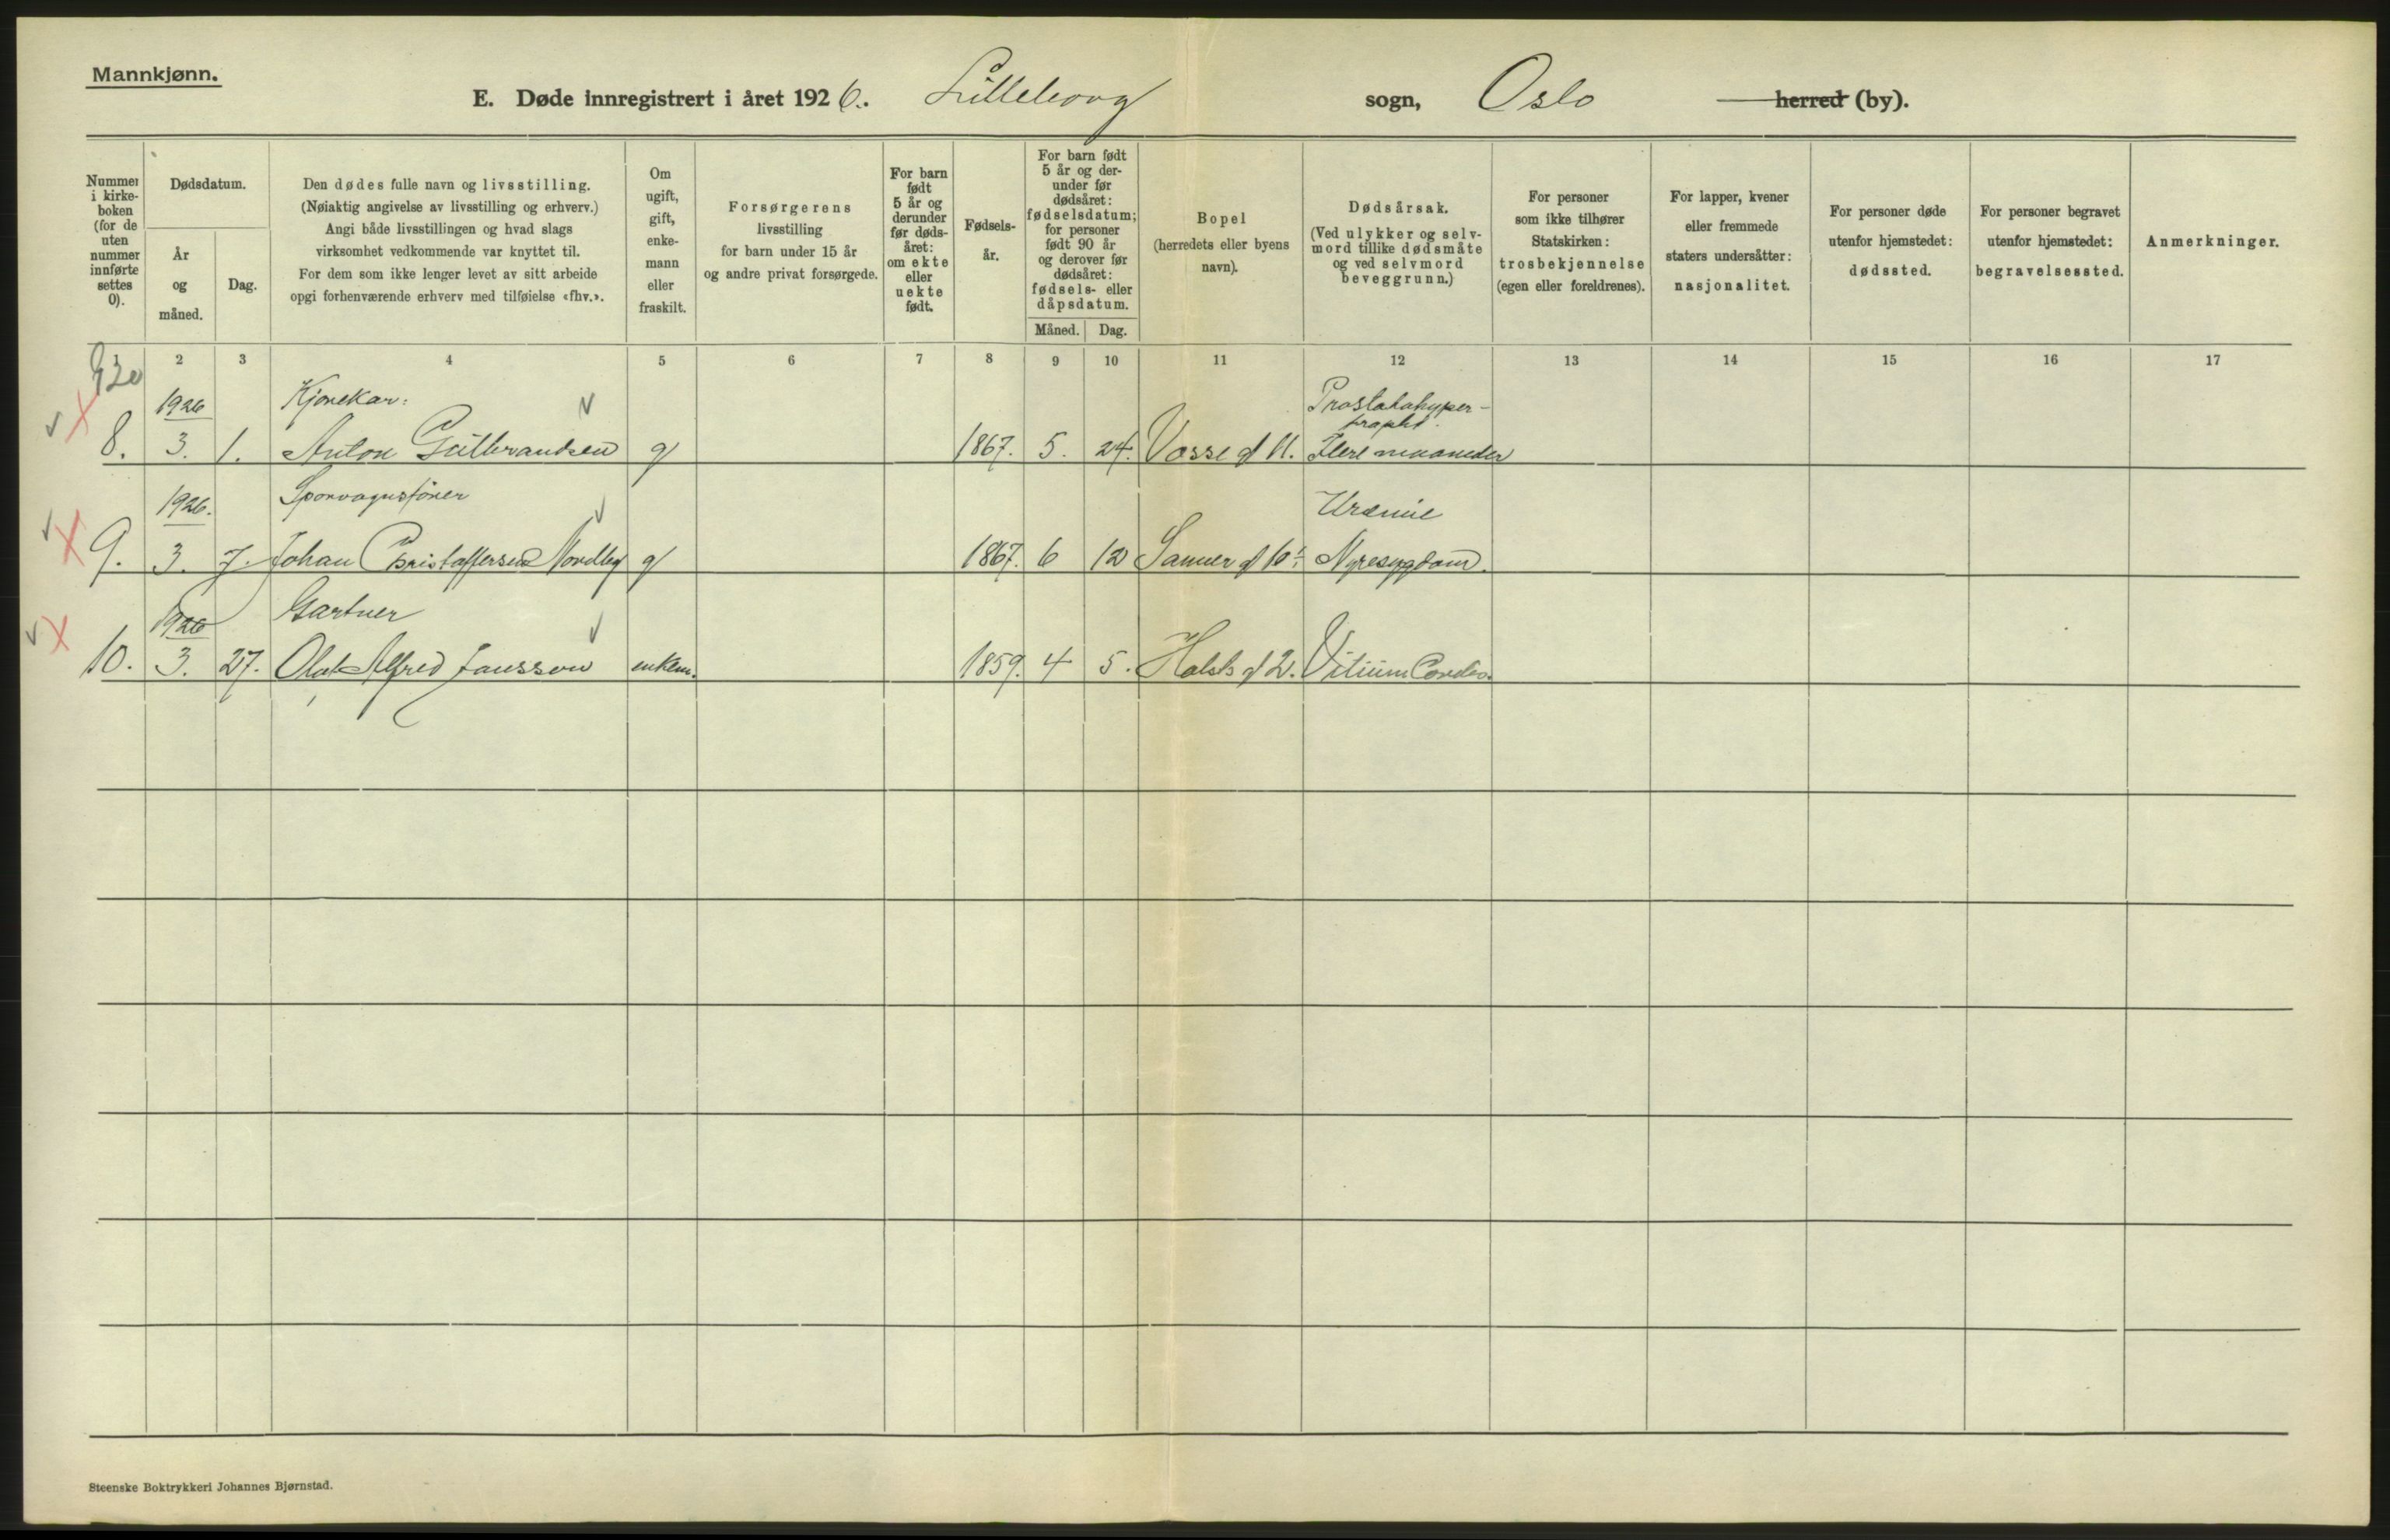 Mannkjønn.
E. Døde innregistrert i året 1926. Lilleborg sogn, Oslo herred (by).
Nummer i kirkeboken (for de uten nummer innførte settes 0).
Dødsdatum.
År og måned.
Dag.
Den dødes fulle navn og livsstilling.
(Nøiaktig angivelse av livsstilling og erhverv.)
Angi både livsstillingen og hvad slags
virksomhet vedkommende var knyttet til.
For dem som ikke lenger levet av sitt arbeide
opgi forhenværende erhverv med tilføielse «fhv.».
Om ugift, gift, enkemann eller fraskilt.
Forsørgerens
livsstilling
for barn under 15 år
og andre privat forsørgede.
For barn født 5 år og derunder før dødsåret: om ekte eller uekte født.
Fødselsår.
For barn født 5 år og derunder før dødsåret: fødselsdatum; for personer født 90 år og derover før dødsåret: fødsels- eller dåpsdatum.
Måned. Dag.
Bopel
(herredets eller byens
navn).
Dødsårsak.
(Ved ulykker og selvmord tillike dødsmåte og ved selvmord beveggrunn.)
For personer
som ikke tilhører
Statskirken:
trosbekjennelse
(egen eller foreldrenes).
For lapper, kvener
eller fremmede
staters undersåtter:
nasjonalitet.
For personer døde
utenfor hjemstedet:
dødssted.
For personer begravet
utenfor hjemstedet:
begravelsessted.
Anmerkninger.
1 2 3 4 5 6 7 8 9 10 11 12 13 14 15 16 17
1926 Kjørekar: Prostatahyper-
trophi.
8. 3. 1. Anton Gulbrandsen g 1867. 5. 24. Vosse g 11. Flere maaneder
1926. Sporvognsfører Uræmie
9. 3. 7. Johan Christoffersen Nordby g 1867. 6 12 Sanner g 10 Nyresygdom.
1926 Gartner
10. 3. 27. Olaf Alfred Jansson enkem. 1859. 4 5. Holsts g 2. Vitium Cordis.
Steenske Boktrykkeri Johannes Bjørnstad.